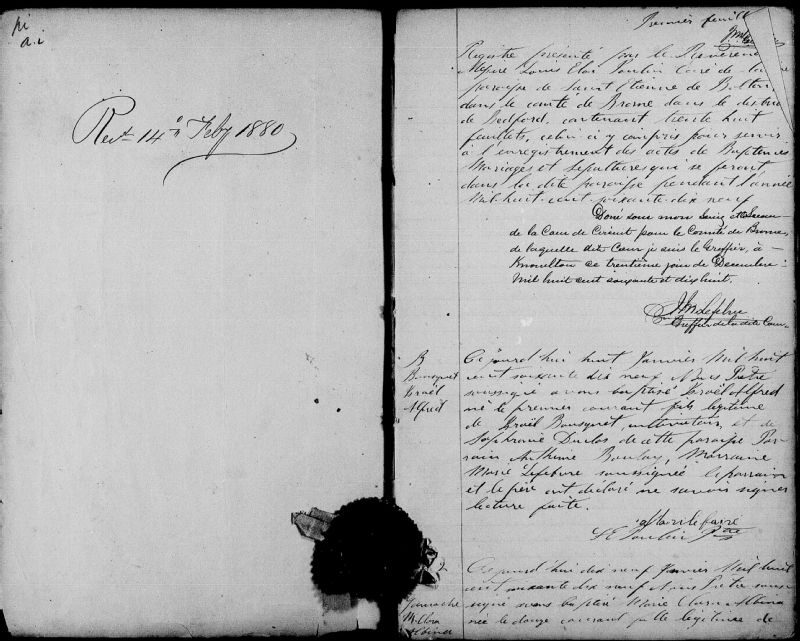 Recd 14th Feby 1880
Premier feuillet
Registre présenté par le Révérend
Messire Louis Eloi Poulin Curé de la
paroisse de Saint Etienne de Bolton
dans le comté de Brome dans le district
de Bedford, contenant trente huit
feuillets, celui ci y compris pour servir
à l'enregistrement des actes de Baptêmes
Mariages et Sépultures qui se feront
dans la dite paroisse pendant l'année
Mil huit cent soixante dix neuf
Doné sous mon Seing et Sceau
de la Cour de Circuit pour le Comté de Brome,
de laquelle dite Cour je suis le Greffier, à
Knowlton ce trentième jour de Décembre
Mil huit cent soixante et dix huit.
Lefebvre
Greffier de la dite Cour
B
Bousquet
Israël
Alfred
Ce jourd'hui huit Janvier Mil huit
cent soixante dix neuf Nous Prêtre
soussigné avons baptisé Israël Alfred
né le premier courant fils légitime
de Israël Bousquet, cultivateur, et de
Sophronie Duclos de cette paroisse Par-
rain Anthime Boulay, Marraine
Marie Lefebvre soussignée le parrain
et le père ont déclaré ne savoir signer
lecture faite.
Marie Lefavre
L E Poulin Ptre
2
Gamache
M. Clara
Albina
Ce jourd'hui dix neuf Janvier Mil huit
cent soixante dix neuf Nous Prêtre sous-
signé avons baptisé Marie Clara Albina
née le douze courant fille légitime de